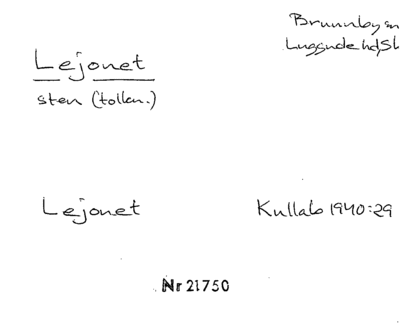 Brunnby sn
Luggude hd, Sk
Lejonet
sten (tollen.)
Lejonet
Kullab 1940:29
Nr 21750